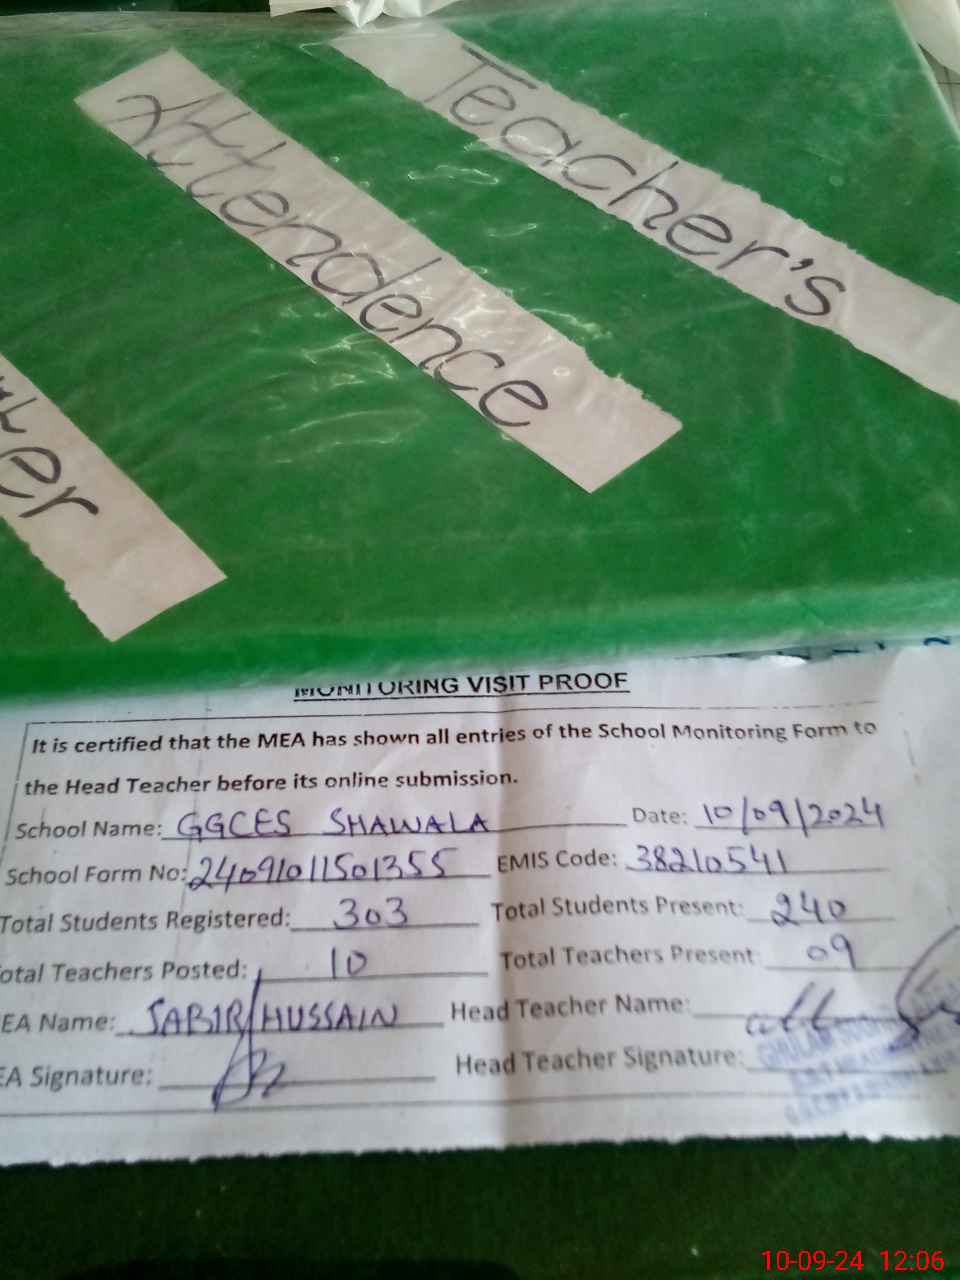 Teacher's
Attendence
MONITORING VISIT PROOF
It is certified that the MEA has shown all entries of the School Monitoring Form to
the Head Teacher before its online submission.
School Name: GGCES SHAWALA Date: 10/09/2024
School Form No: 24091011501355 EMIS Code: 38210541
Total Students Registered: 303 Total Students Present: 240
otal Teachers Posted: 10 Total Teachers Present: 09
EA Name: SABIR HUSSAIN Head Teacher Name:
EA Signature: Head Teacher Signature:
10-09-24 12:06